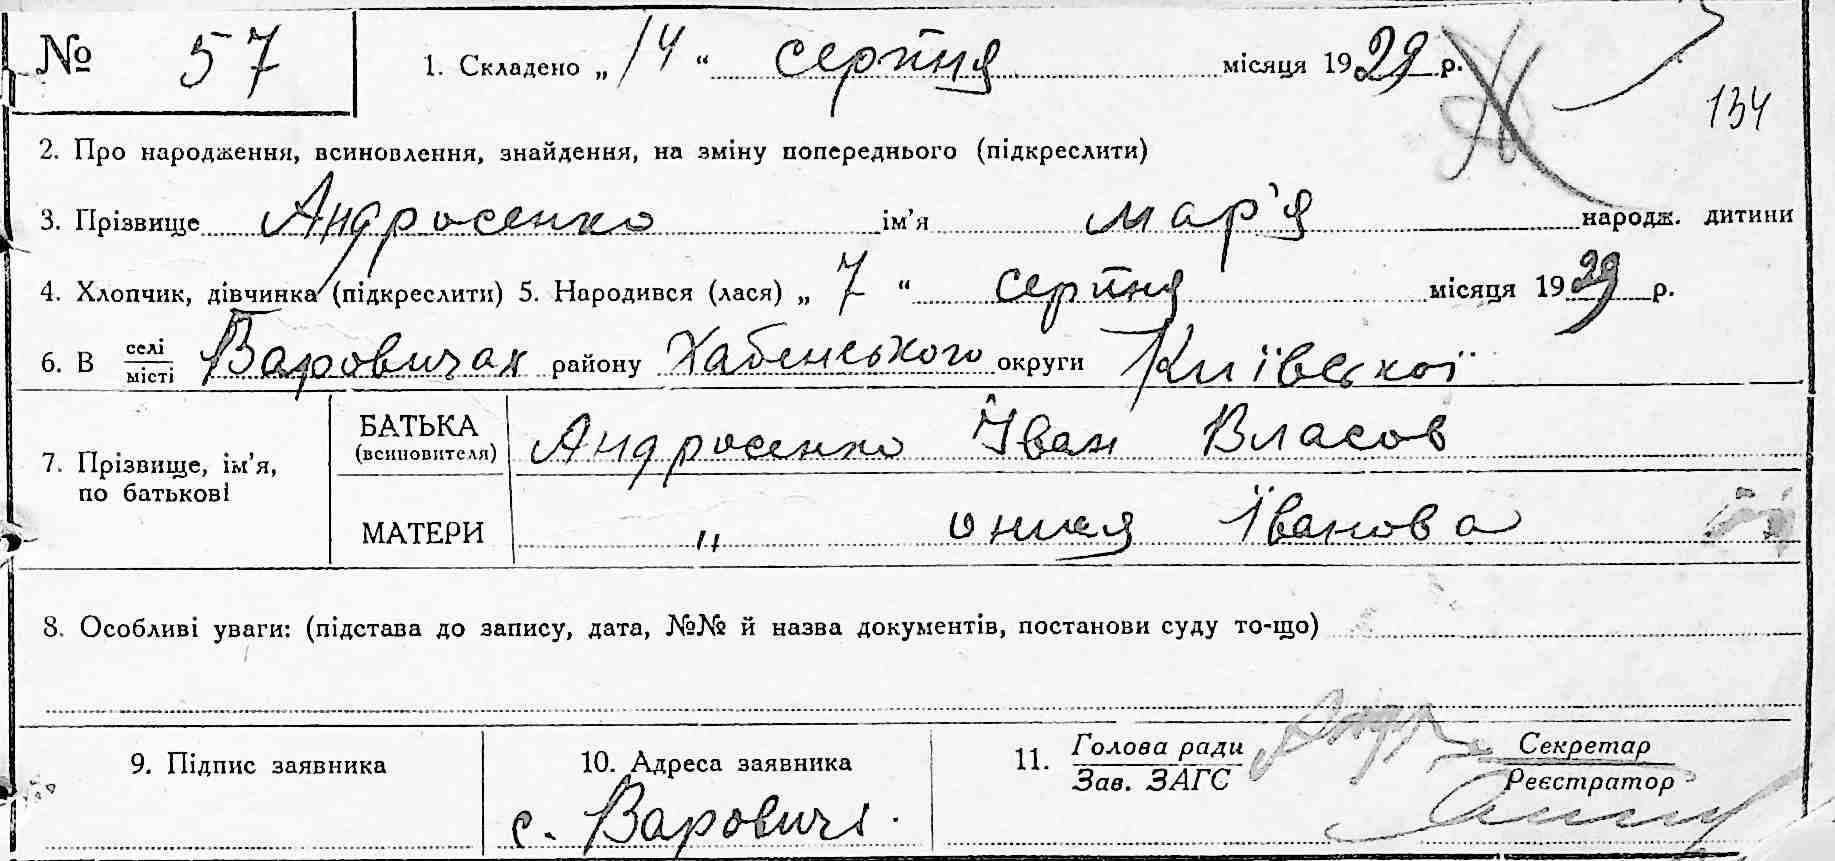 № 57 1. Складено „ 14 “ серпня місяця 1929 р.
134
2. Про народження, всиновлення, знайдення, на зміну попереднього (підкреслити)
3. Прізвище Андросенко ім’я мар'я народж. дитини
4. Хлопчик, дівчинка (підкреслити) 5. Народився (лася) „ 7 “ серпня місяця 1929 р.
6. В селі місті Варовичах району Хабенського округи Київської
7. Прізвище, ім’я, по батькові
БАТЬКА (всиновителя) Андросенко Іван Власов
МАТЕРИ " Іванова
8. Особливі уваги: (підстава до запису, дата, №№ й назва документів, постанови суду то-що)
9. Підпис заявника
10. Адреса заявника
с. Варовичі.
11. Голова ради Зав. ЗАГС
Секретар Реєстратор